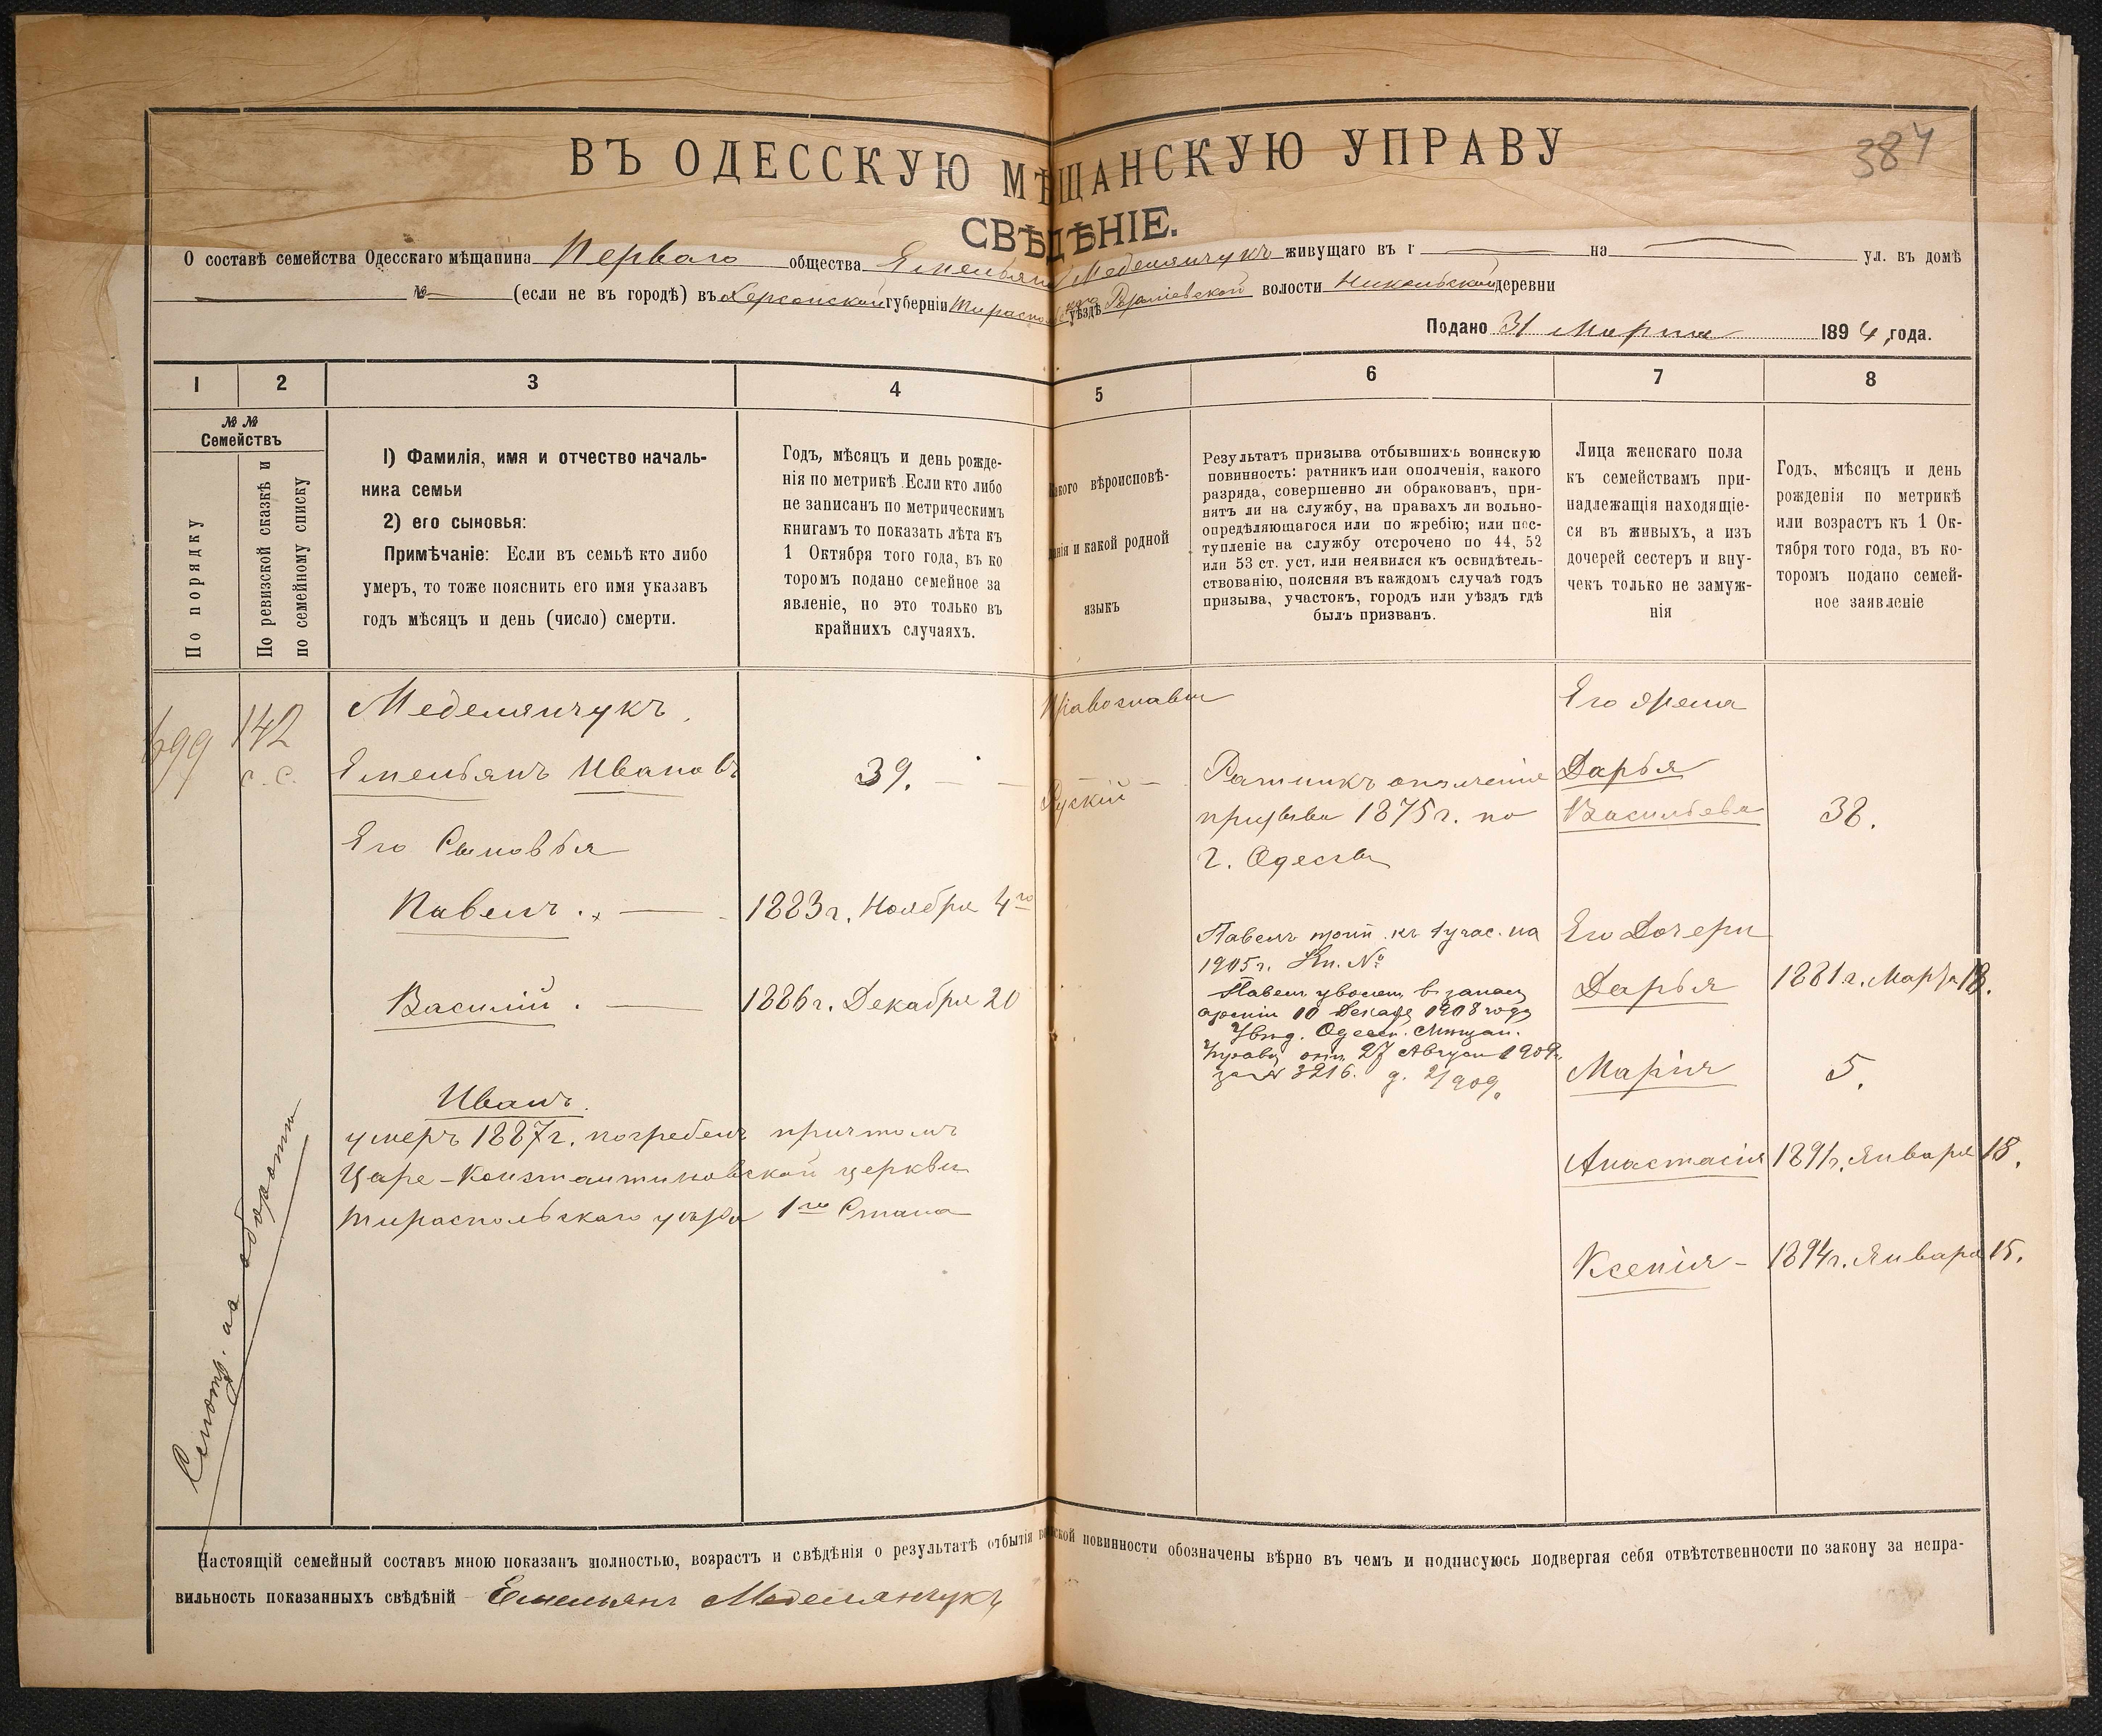 384
ВЪ ОДЕССКУЮ МѢЩАНСКУЮ УПРАВУ
СВѢДѢНІЕ.
О составѣ семейства Одесскаго мѣщанина Перваго общества Емельянъ Меделянчукъ живущаго въ г — на — ул. въ домѣ
— № — (если не въ городѣ) въ Херсонской губерніи Тираспольскаго уѣздѣ волости Никольской деревни
Подано 31 Марта 1894 года.
1 2 3 4 5 6 7 8
№ № Семействъ
По порядку
По ревизской сказкѣ и
по семейному списку
1) Фамилія, имя и отчество началь-
ника семьи
2) его сыновья:
Примѣчаніе: Если въ семьѣ кто либо
умеръ, то тоже пояснить его имя указавъ
годъ мѣсяцъ и день (число) смерти.
Годъ, мѣсяцъ и день рожде-
нія по метрикѣ. Если кто либо
не записанъ по метрическимъ
книгамъ то показать лѣта къ
1 Октября того года, въ ко
торомъ подано семейное за
явленіе, но это только въ
крайнихъ случаяхъ.
Какого вѣроисповѣ-
данія и какой родной
языкъ
Результатъ призыва отбывшихъ воинскую
повинность: ратникъ или ополченія, какого
разряда, совершенно ли обракованъ, при-
нятъ ли на службу, на правахъ ли вольно-
опредѣляющагося или по жребію; или пос-
тупленіе на службу отсрочено по 44, 52
или 53 ст. уст. или неявился къ освидѣтель-
ствованію, поясняя въ каждомъ случаѣ годъ
призыва, участокъ, городъ или уѣздъ гдѣ
былъ призванъ.
Лица женскаго пола
къ семействамъ при-
надлежащія находящіе-
ся въ живыхъ, а изъ
дочерей сестеръ и вну-
чекъ только не замуж-
нія
Годъ, мѣсяцъ и день
рожденія по метрикѣ
или возрастъ къ 1 Ок-
тября того года, въ ко-
торомъ подано семей-
ное заявленіе
699
142
с. с.
Меделянчукъ.
Емельянъ Ивановъ
39. —
Его Сыновья
Павелъ. — 1883г. Ноября 4го
Василій. — 1886г. Декабря 20
Иванъ.
умеръ 1887г. погребенъ причтомъ
Царе-Константиновской церкви
Тираспольскаго уѣзда 1го Стана
Православн
Рускій —
Ратникъ ополченія
призыва 1875г. по
г. Одессы
Павелъ прип. къ 1 учас. на
1905г. Пп. №
Павелъ уволен в запас
арміи 10 Декабр 1908 года
Увѣд. Одесск. Мѣщан.
Управы отъ 27 Август 1909
за № 3216. д. 2/909.
Его жена
Дарья
Васильева
38.
Его Дочери
Дарья 1881г. Марта 18.
Марія 5.
Анастасія 1891г. Января 18.
Ксенія - 1894г. Января 15.
Смотр. на оборотѣ
Настоящій семейный составъ мною показанъ полностью, возрастъ и свѣдѣнія о результатѣ отбытія воинской повинности обозначены вѣрно въ чемъ и подписуюсь подвергая себя отвѣтственности по закону за непра-
вильность показанныхъ свѣдѣній Емельянъ Меделянчукъ